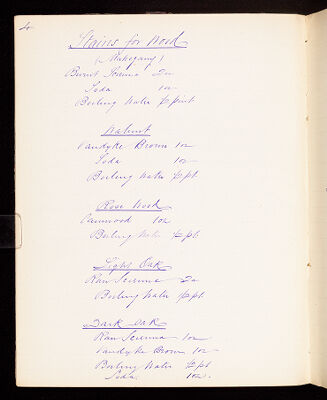 4
Stains for Wood
(Mahogany)
Burnt Sienna 2oz
Soda 1oz
Boiling Water ½ pint
Walnut
Vandyke Brown 1oz
Soda 1oz
Boiling Water ½ pt
Rose Wood
Camwood 1oz
Boiling Water ½ pt
Light Oak
Raw Sienna 2oz
Boiling Water ½ pt
Dark Oak
Raw Sienna 1oz
Vandyke Brown 1oz
Boiling Water ½ pt
Soda 1oz.